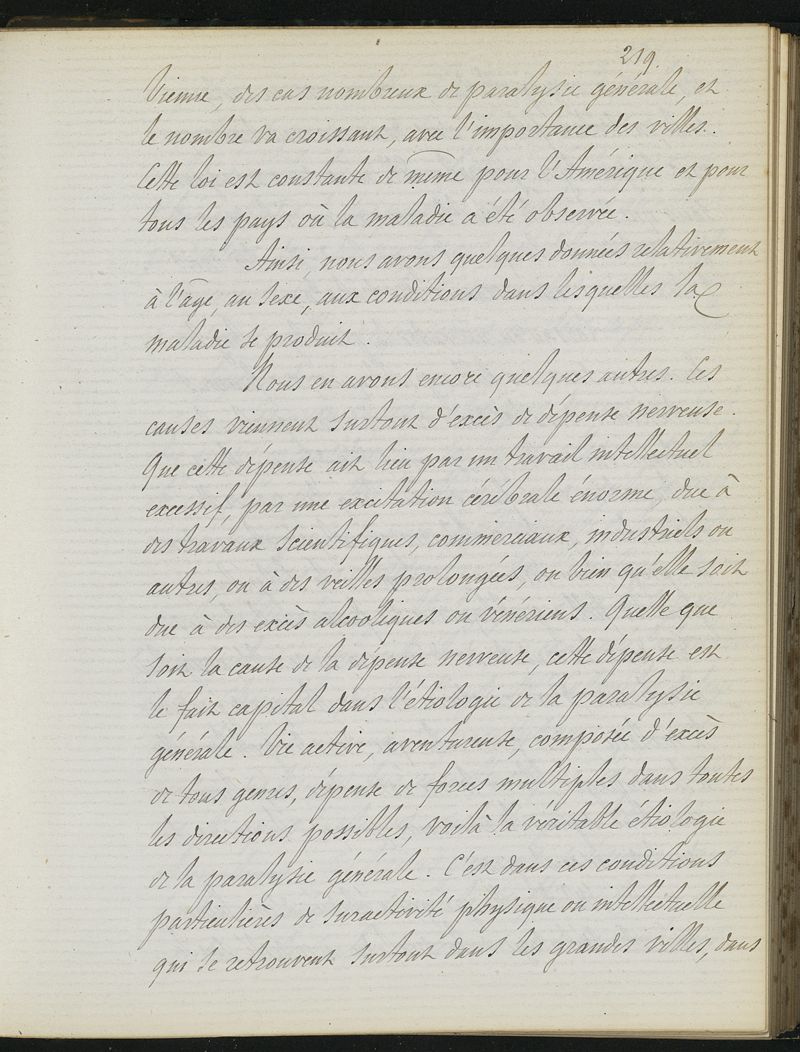 219.
Vienne, des cas nombreux de paralysie générale, et
le nombre va croissant, avec l'importance des villes.
Cette loi est constante de même pour l'Amérique et pour
tous les pays où la maladie a été observée.
Ainsi, nous avons quelques données relativement
à l'âge, au sexe, aux conditions dans lesquelles la
maladie se produit.
Nous en avons encore quelques autres. Ces
causes viennent surtout d'excès de dépense nerveuse.
Que cette dépense ait lieu par un travail intellectuel
excessif, par une excitation cérébrale énorme, due à
des travaux scientifiques, commerciaux, industriels ou
autres, ou à des veilles prolongées, ou bien qu'elle soit
due à des excès alcooliques ou vénériens. Quelle que
soit la cause de la dépense nerveuse, cette dépense est
le fait capital dans l'étiologie de la paralysie
générale. Vie active, aventureuse, composée d'excès
de tous genres, dépense de forces multiples dans toutes
les directions possibles, voilà la véritable étiologie
de la paralysie générale. C'est dans ces conditions
particulières de suractivité physique ou intellectuelle
qui se retrouvent surtout dans les grandes villes, dans